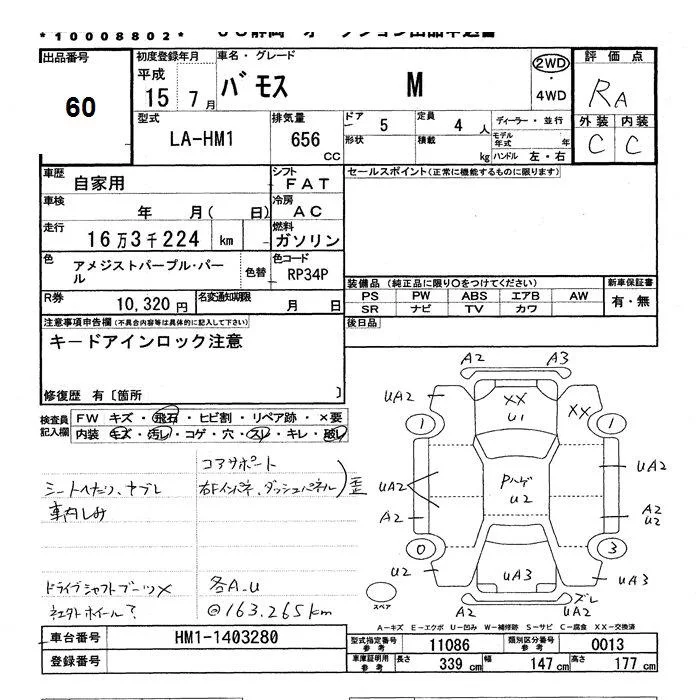 *10008802*
出品番号
60
初度登録年月
平成
15 7月
車名・グレード
バモス M
2WD
・
4WD
評価点
RA
外装 内装
C C
型式
LA-HM1
排気量
656
CC
ドア
5
定員
4 人
形状
積載
kg
ディーラー・並行
モデル年式 年
ハンドル 左・右
車歴
自家用
シフト
FAT
車検
年 月( 日)
冷房
AC
走行
16万3千224 km
燃料
ガソリン
色
アメジストパープル・パール
色替
色コード
RP34P
R券
10,320円
名変通知期限
月 日
セールスポイント(正常に機能するものに限ります)
装備品(純正品に限り○をつけてください)
PS PW ABS エアB AW
SR ナビ TV カワ
新車保証書
有・無
後日品
注意事項申告欄(不具合内容等は具体的に記入して下さい)
キードアインロック注意
修復歴 有〔箇所 〕
検査員記入欄
FW キズ・飛石・ヒビ割・リペア跡・×要
内装 キズ・汚レ・コゲ・穴・スレ・キレ・破レ
コアサポート
右Fインパネ、ダッシュパネル)歪
シートヘたり、ヤブレ
車内しみ
ドライブシャフトブーツ×
社外ホイール?
各A.U
@163.265km
A2 A3
UA2
XX
U1
XX
1 1
UA2
Pハゲ
U2
UA2
A2
A2
U2
0 3
U2
UA3
UA3
スペア
A2
ズレ
UA2
A-キズ E-エクボ U-凹み W-補修跡 S-サビ C-腐食 XX-交換済
車台番号
HM1-1403280
登録番号
型式指定番号 参考
11086
類別区分番号 参考
0013
車庫証明用 参考
長さ 339 cm
幅 147 cm
高さ 177 cm